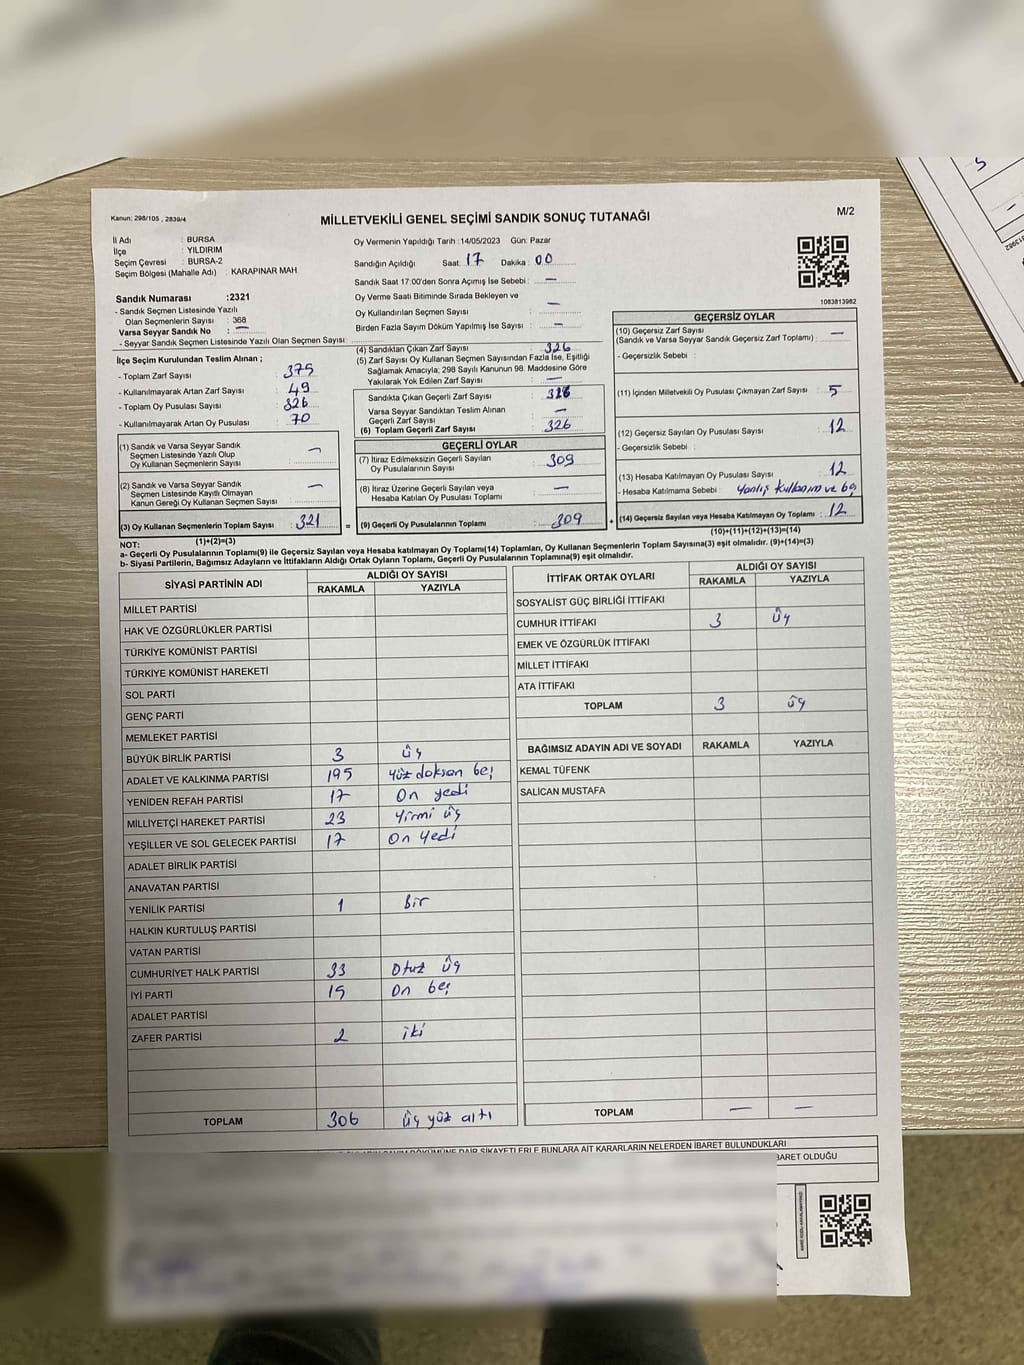 Kanun: 298/105 , 2839/4
MİLLETVEKİLİ GENEL SEÇİMİ SANDIK SONUÇ TUTANAĞI
M/2
İl Adı : BURSA
İlçe : YILDIRIM
Seçim Çevresi : BURSA-2
Seçim Bölgesi (Mahalle Adı) : KARAPINAR MAH.
Oy Vermenin Yapıldığı Tarih :14/05/2023 Gün: Pazar
Sandığın Açıldığı Saat: 17 Dakika : 00
Sandık Saat 17:00'den Sonra Açımış İse Sebebi : —
Oy Verme Saati Bitiminde Sırada Bekleyen ve
Oy Kullandırılan Seçmen Sayısı : —
Birden Fazla Sayım Döküm Yapılmış İse Sayısı : —
1083813982
Sandık Numarası :2321
- Sandık Seçmen Listesinde Yazılı
Olan Seçmenlerin Sayısı : 368
Varsa Seyyar Sandık No : —
- Seyyar Sandık Seçmen Listesinde Yazılı Olan Seçmen Sayısı :
İlçe Seçim Kurulundan Teslim Alınan ;
- Toplam Zarf Sayısı : 375
- Kullanılmayarak Artan Zarf Sayısı : 49
- Toplam Oy Pusulası Sayısı : 326
- Kullanılmayarak Artan Oy Pusulası : 70
(1) Sandık ve Varsa Seyyar Sandık
Seçmen Listesinde Yazılı Olup
Oy Kullanan Seçmenlerin Sayısı : —
(2) Sandık ve Varsa Seyyar Sandık
Seçmen Listesinde Kayıtlı Olmayan
Kanun Gereği Oy Kullanan Seçmen Sayısı : —
(3) Oy Kullanan Seçmenlerin Toplam Sayısı : 321 =
(1)+(2)=(3)
(4) Sandıktan Çıkan Zarf Sayısı : 326
(5) Zarf Sayısı Oy Kullanan Seçmen Sayısından Fazla İse, Eşitliği
Sağlamak Amacıyla, 298 Sayılı Kanunun 98. Maddesine Göre
Yakılarak Yok Edilen Zarf Sayısı : —
Sandıkta Çıkan Geçerli Zarf Sayısı : 326
Varsa Seyyar Sandıktan Teslim Alınan
Geçerli Zarf Sayısı : —
(6) Toplam Geçerli Zarf Sayısı : 326
GEÇERLİ OYLAR
(7) İtiraz Edilmeksizin Geçerli Sayılan
Oy Pusulalarının Sayısı : 309
(8) İtiraz Üzerine Geçerli Sayılan veya
Hesaba Katılan Oy Pusulası Toplamı : —
(9) Geçerli Oy Pusulalarının Toplamı : 309 +
GEÇERSİZ OYLAR
(10) Geçersiz Zarf Sayısı
(Sandık ve Varsa Seyyar Sandık Geçersiz Zarf Toplamı) : —
- Geçersizlik Sebebi :
(11) İçinden Milletvekili Oy Pusulası Çıkmayan Zarf Sayısı : 5
(12) Geçersiz Sayılan Oy Pusulası Sayısı : 12
- Geçersizlik Sebebi :
(13) Hesaba Katılmayan Oy Pusulası Sayısı : 12
- Hesaba Katılmama Sebebi : Yanlış kullanım ve boş
(14) Geçersiz Sayılan veya Hesaba Katılmayan Oy Toplamı : 12
(10)+(11)+(12)+(13)=(14)
NOT:
a- Geçerli Oy Pusulalarının Toplamı(9) ile Geçersiz Sayılan veya Hesaba katılmayan Oy Toplamı(14) Toplamları, Oy Kullanan Seçmenlerin Toplam Sayısına(3) eşit olmalıdır. (9)+(14)=(3)
b- Siyasi Partilerin, Bağımsız Adayların ve İttifakların Aldığı Ortak Oyların Toplamı, Geçerli Oy Pusulalarının Toplamına(9) eşit olmalıdır.
SİYASİ PARTİNİN ADI ALDIĞI OY SAYISI
RAKAMLA YAZIYLA
MİLLET PARTİSİ
HAK VE ÖZGÜRLÜKLER PARTİSİ
TÜRKİYE KOMÜNİST PARTİSİ
TÜRKİYE KOMÜNİST HAREKETİ
SOL PARTİ
GENÇ PARTİ
MEMLEKET PARTİSİ
BÜYÜK BİRLİK PARTİSİ 3 üç
ADALET VE KALKINMA PARTİSİ 195 yüz doksan beş
YENİDEN REFAH PARTİSİ 17 On yedi
MİLLİYETÇİ HAREKET PARTİSİ 23 Yirmi üç
YEŞİLLER VE SOL GELECEK PARTİSİ 17 On Yedi
ADALET BİRLİK PARTİSİ
ANAVATAN PARTİSİ
YENİLİK PARTİSİ 1 bir
HALKIN KURTULUŞ PARTİSİ
VATAN PARTİSİ
CUMHURİYET HALK PARTİSİ 33 Otuz üç
İYİ PARTİ 15 On beş
ADALET PARTİSİ
ZAFER PARTİSİ 2 iki
TOPLAM 306 üç yüz altı
İTTİFAK ORTAK OYLARI ALDIĞI OY SAYISI
RAKAMLA YAZIYLA
SOSYALİST GÜÇ BİRLİĞİ İTTİFAKI
CUMHUR İTTİFAKI 3 üç
EMEK VE ÖZGÜRLÜK İTTİFAKI
MİLLET İTTİFAKI
ATA İTTİFAKI
TOPLAM 3 üç
BAĞIMSIZ ADAYIN ADI VE SOYADI RAKAMLA YAZIYLA
KEMAL TÜFENK
SALİCAN MUSTAFA
TOPLAM — —
DÖKÜMÜNE DAİR ŞİKAYETLERLE BUNLARA AİT KARARLARIN NELERDEN İBARET BULUNDUKLARI
BARET OLDUĞU